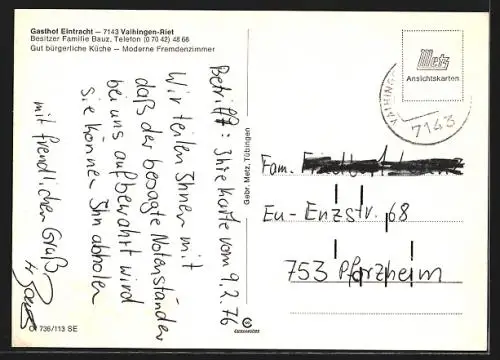 Gasthof Eintracht – 7143 Vaihingen-Riet
Besitzer Familie Bauz, Telefon (0 70 42) 48 66
Gut bürgerliche Küche – Moderne Fremdenzimmer
Betriff: Ihre Karte vom 9.2.76
Wir teilen Ihnen mit
daß der besagte Notenständer
bei uns aufbewahrt wird
sie können Ihn abholen
mit freundlichen Gruß
C 736/113 SE
Gebr. Metz, Tübingen
Metz
Ansichtskarten
VAIHINGEN
7143
Fam.
Eu-Enzstr. 68
753 Pforzheim